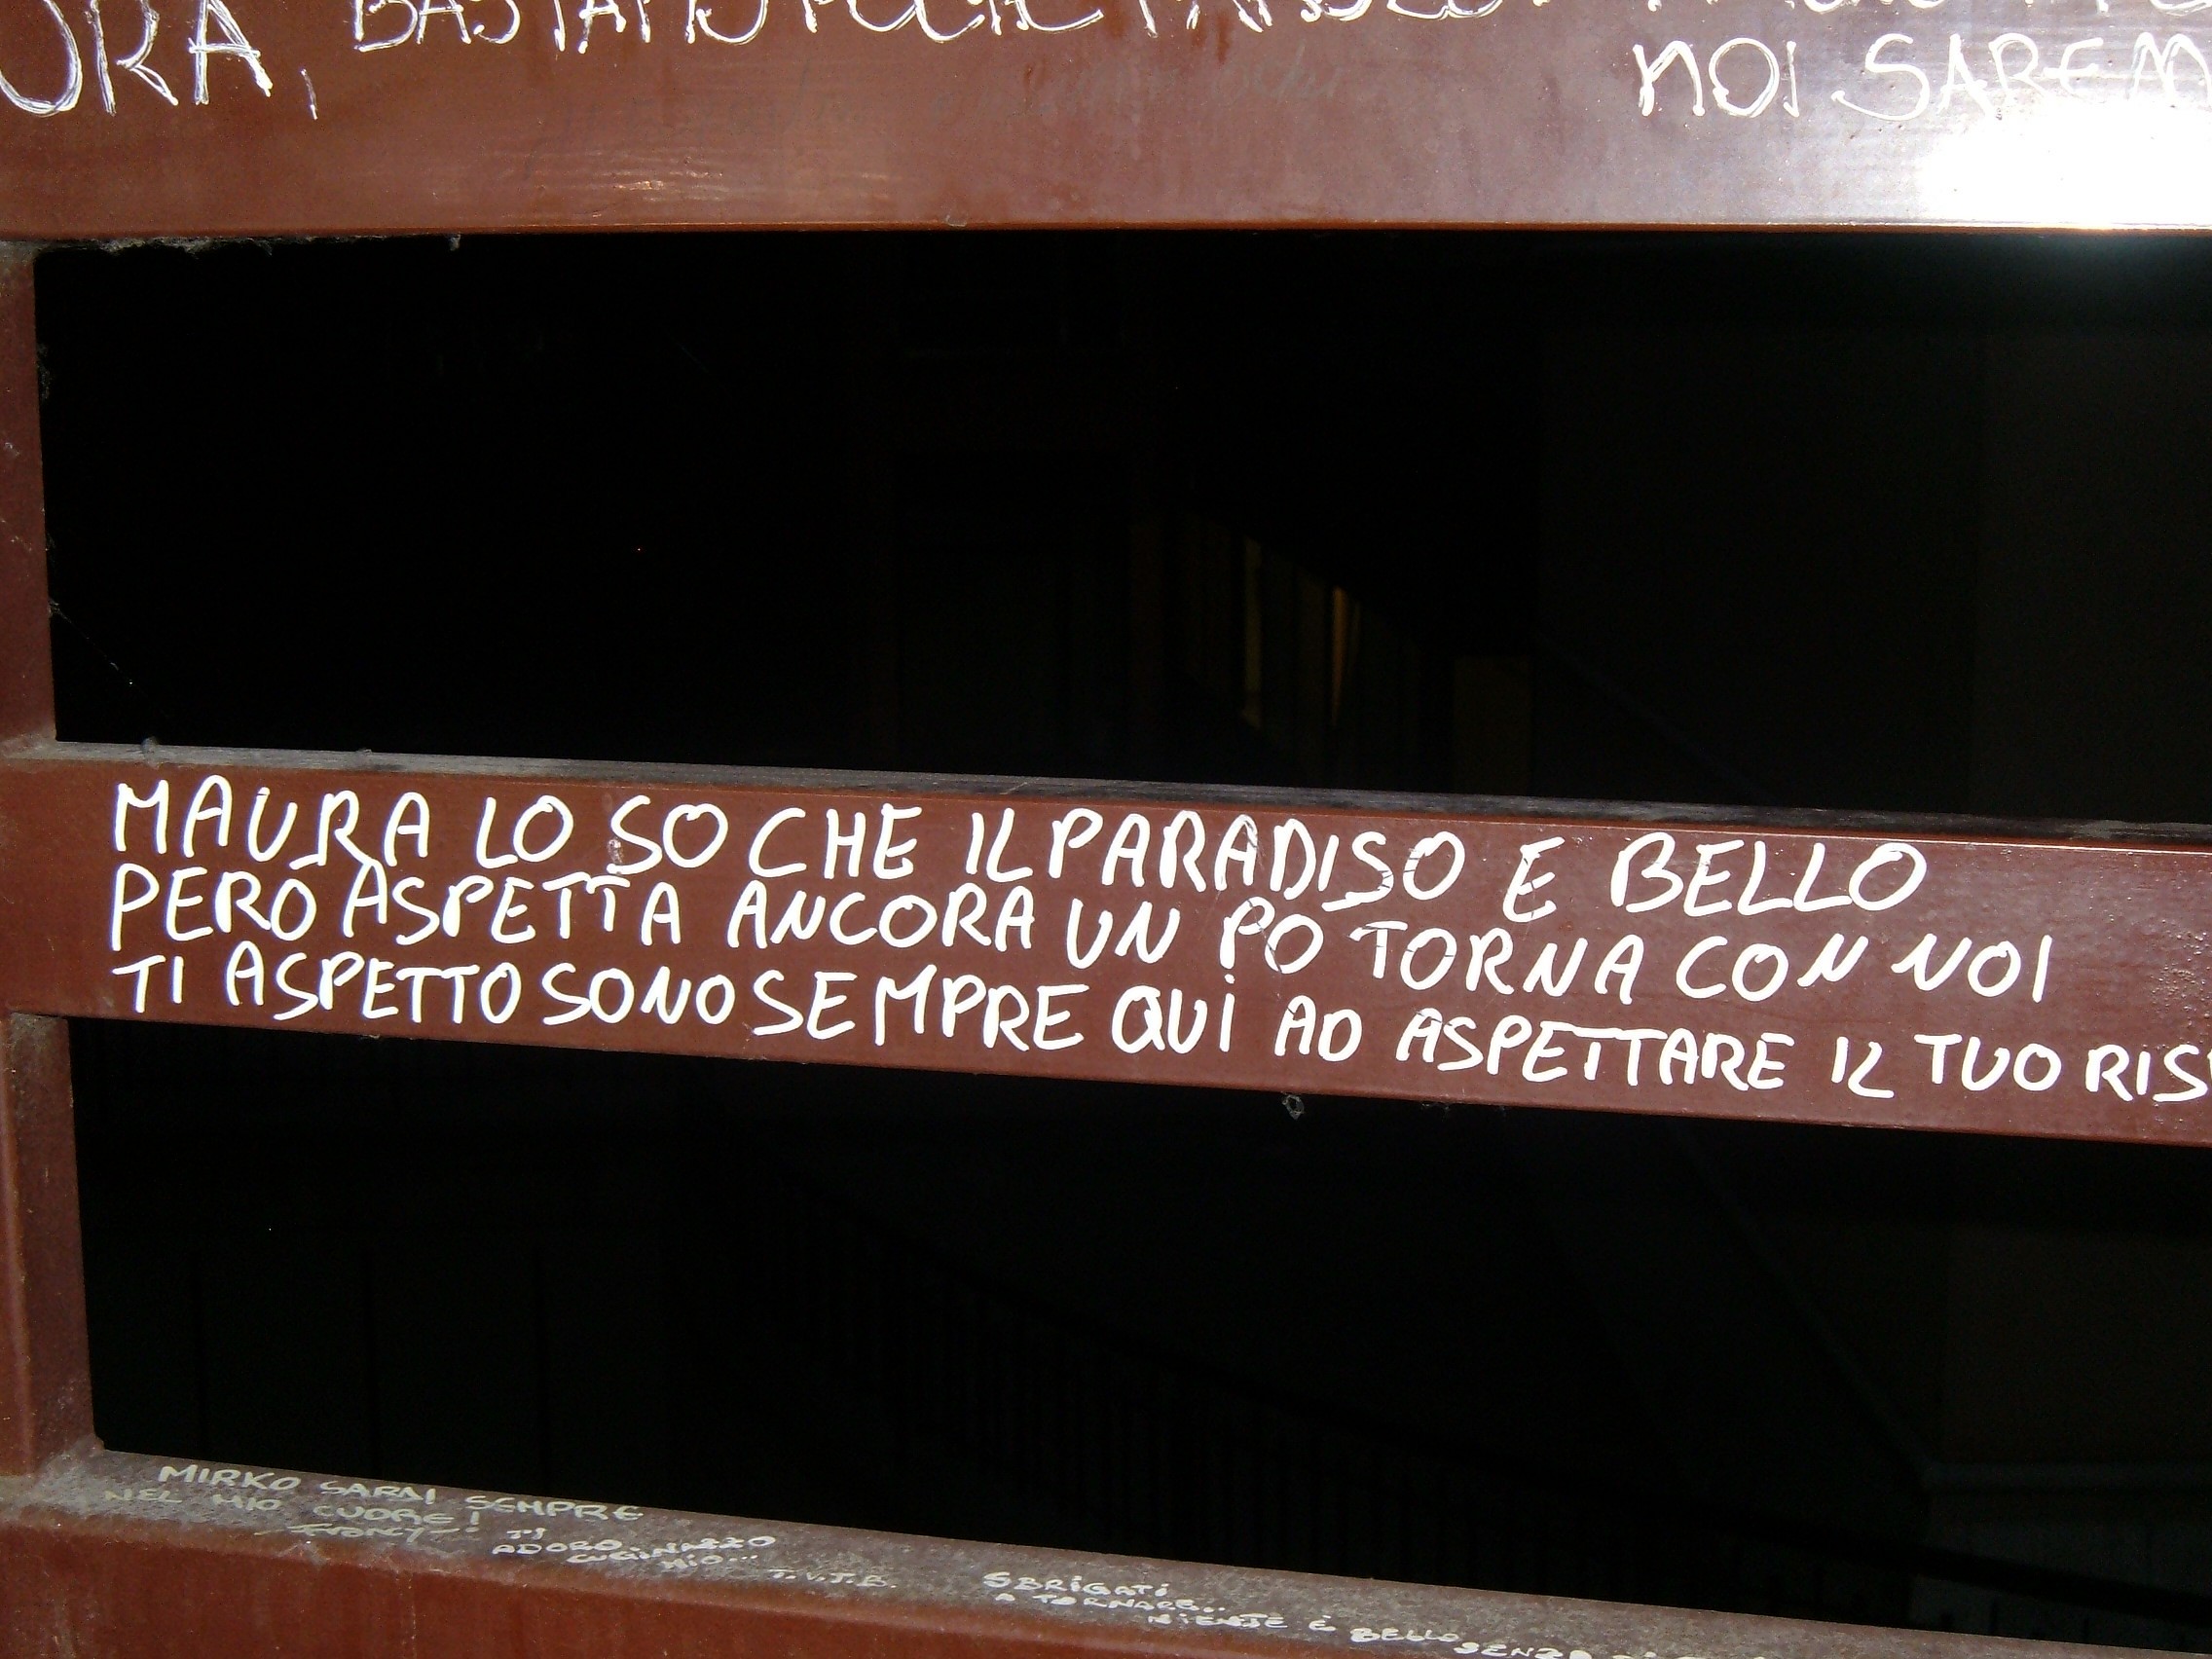 NOI SAREM
MAURA LO SO CHE IL PARADISO E BELLO
PERÒ ASPETTA ANCORA UN PO TORNA CON NOI
TI ASPETTO SONO SEMPRE QUI AD ASPETTARE IL TUO RIS
MIRKO SARAI SEMPRE
NEL MIO CUORE!
TI
ADORO CUGINAZZO
MIO...
T.V.T.B.
SBRIGATI
A TORNARE..
NIENTE È BELLO SENZA